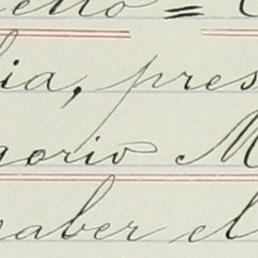 ello =
lia, pres
gorio M
saber el